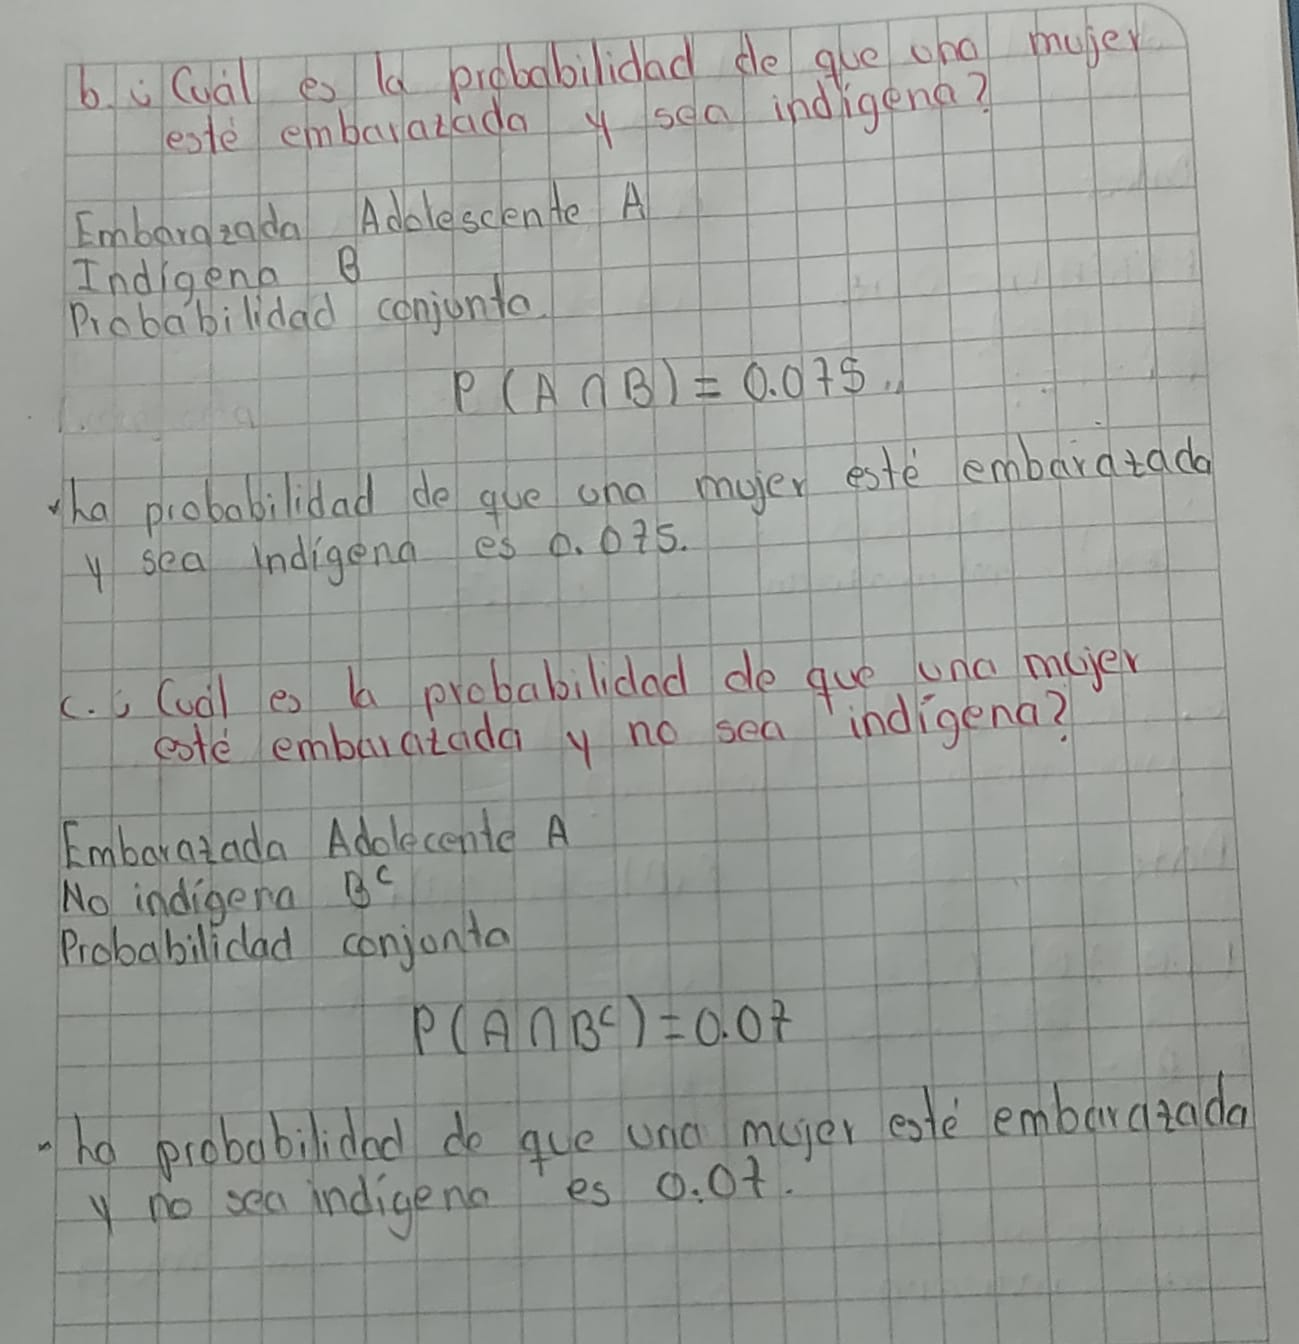 b. ¿Cuál es la probabilidad de que una mujer
esté embarazada y sea indígena?
Embarazada Adolescente A
Indígena B
Probabilidad conjunta
P(A∩B) = 0.075
La probabilidad de que una mujer esté embarazada
y sea indígena es 0.075.
c. ¿Cuál es la probabilidad de que una mujer
esté embarazada y no sea indígena?
Embarazada Adolecente A
No indígena Bᶜ
Probabilidad conjunta
P(A∩Bᶜ) = 0.07
La probabilidad de que una mujer esté embarazada
y no sea indígena es 0.07.